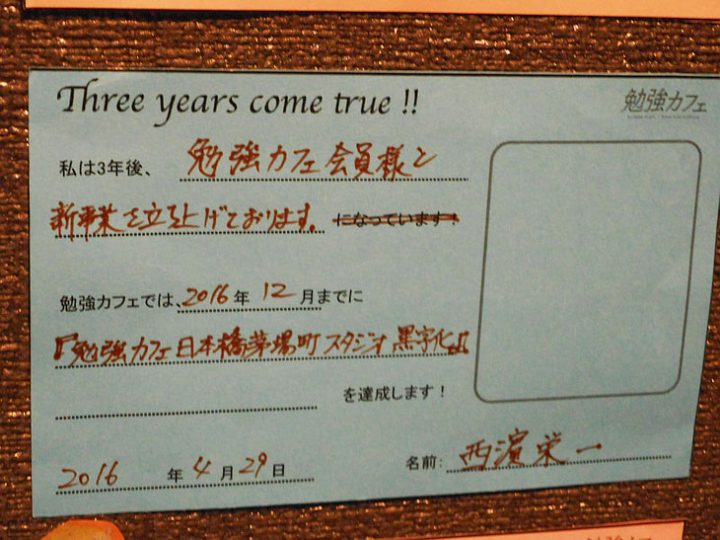 Three years come true !!
勉強カフェ
私は3年後、勉強カフェ会員様と
新事業を立ち上げております。になっています!
勉強カフェでは、2016年12月までに
『勉強カフェ日本橋茅場町スタジオ黒字化』
を達成します!
2016年4月29日
名前:西濵栄一